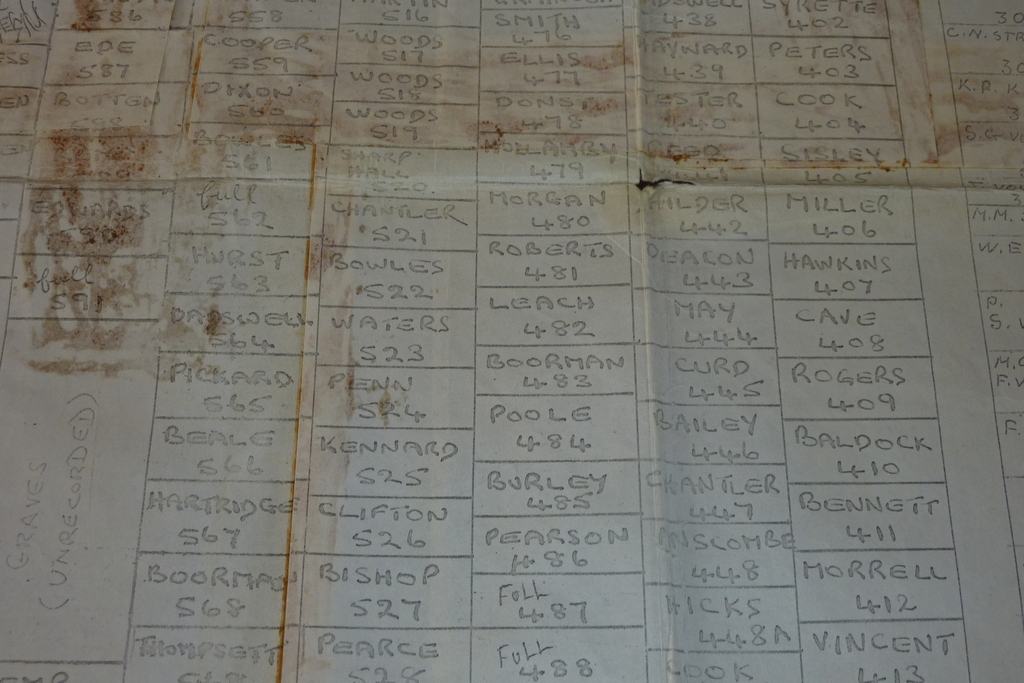 586
EDE
587
BOTTEN
EDWARDS
full
591
GRAVES
(UNRECORDED)
558
COOPER
559
DIXON
560
BOWLES
561
full
562
HURST
563
DADSWELL
564
PICKARD
565
BEALE
566
HARTRIDGE
567
BOORMAN
568
THOMPSETT
MARTIN
516
WOODS
517
WOODS
518
WOODS
519
SHARP
HALL
520
CHANTLER
521
BOWLES
522
WATERS
523
PENN
524
KENNARD
525
CLIFTON
526
BISHOP
527
PEARCE
528
SMITH
476
ELLIS
477
478
479
MORGAN
480
ROBERTS
481
LEACH
482
BOORMAN
483
POOLE
484
BURLEY
485
PEARSON
486
FULL
487
FULL
488
438
HAYWARD
439
TESTER
440
REED
441
HILDER
442
DEACON
443
MAY
444
CURD
445
BAILEY
446
CHANTLER
447
ANSCOMBE
448
HICKS
448A
COOK
SYRETTE
402
PETERS
403
COOK
404
SISLEY
405
MILLER
406
HAWKINS
407
CAVE
408
ROGERS
409
BALDOCK
410
BENNETT
411
MORRELL
412
VINCENT
413